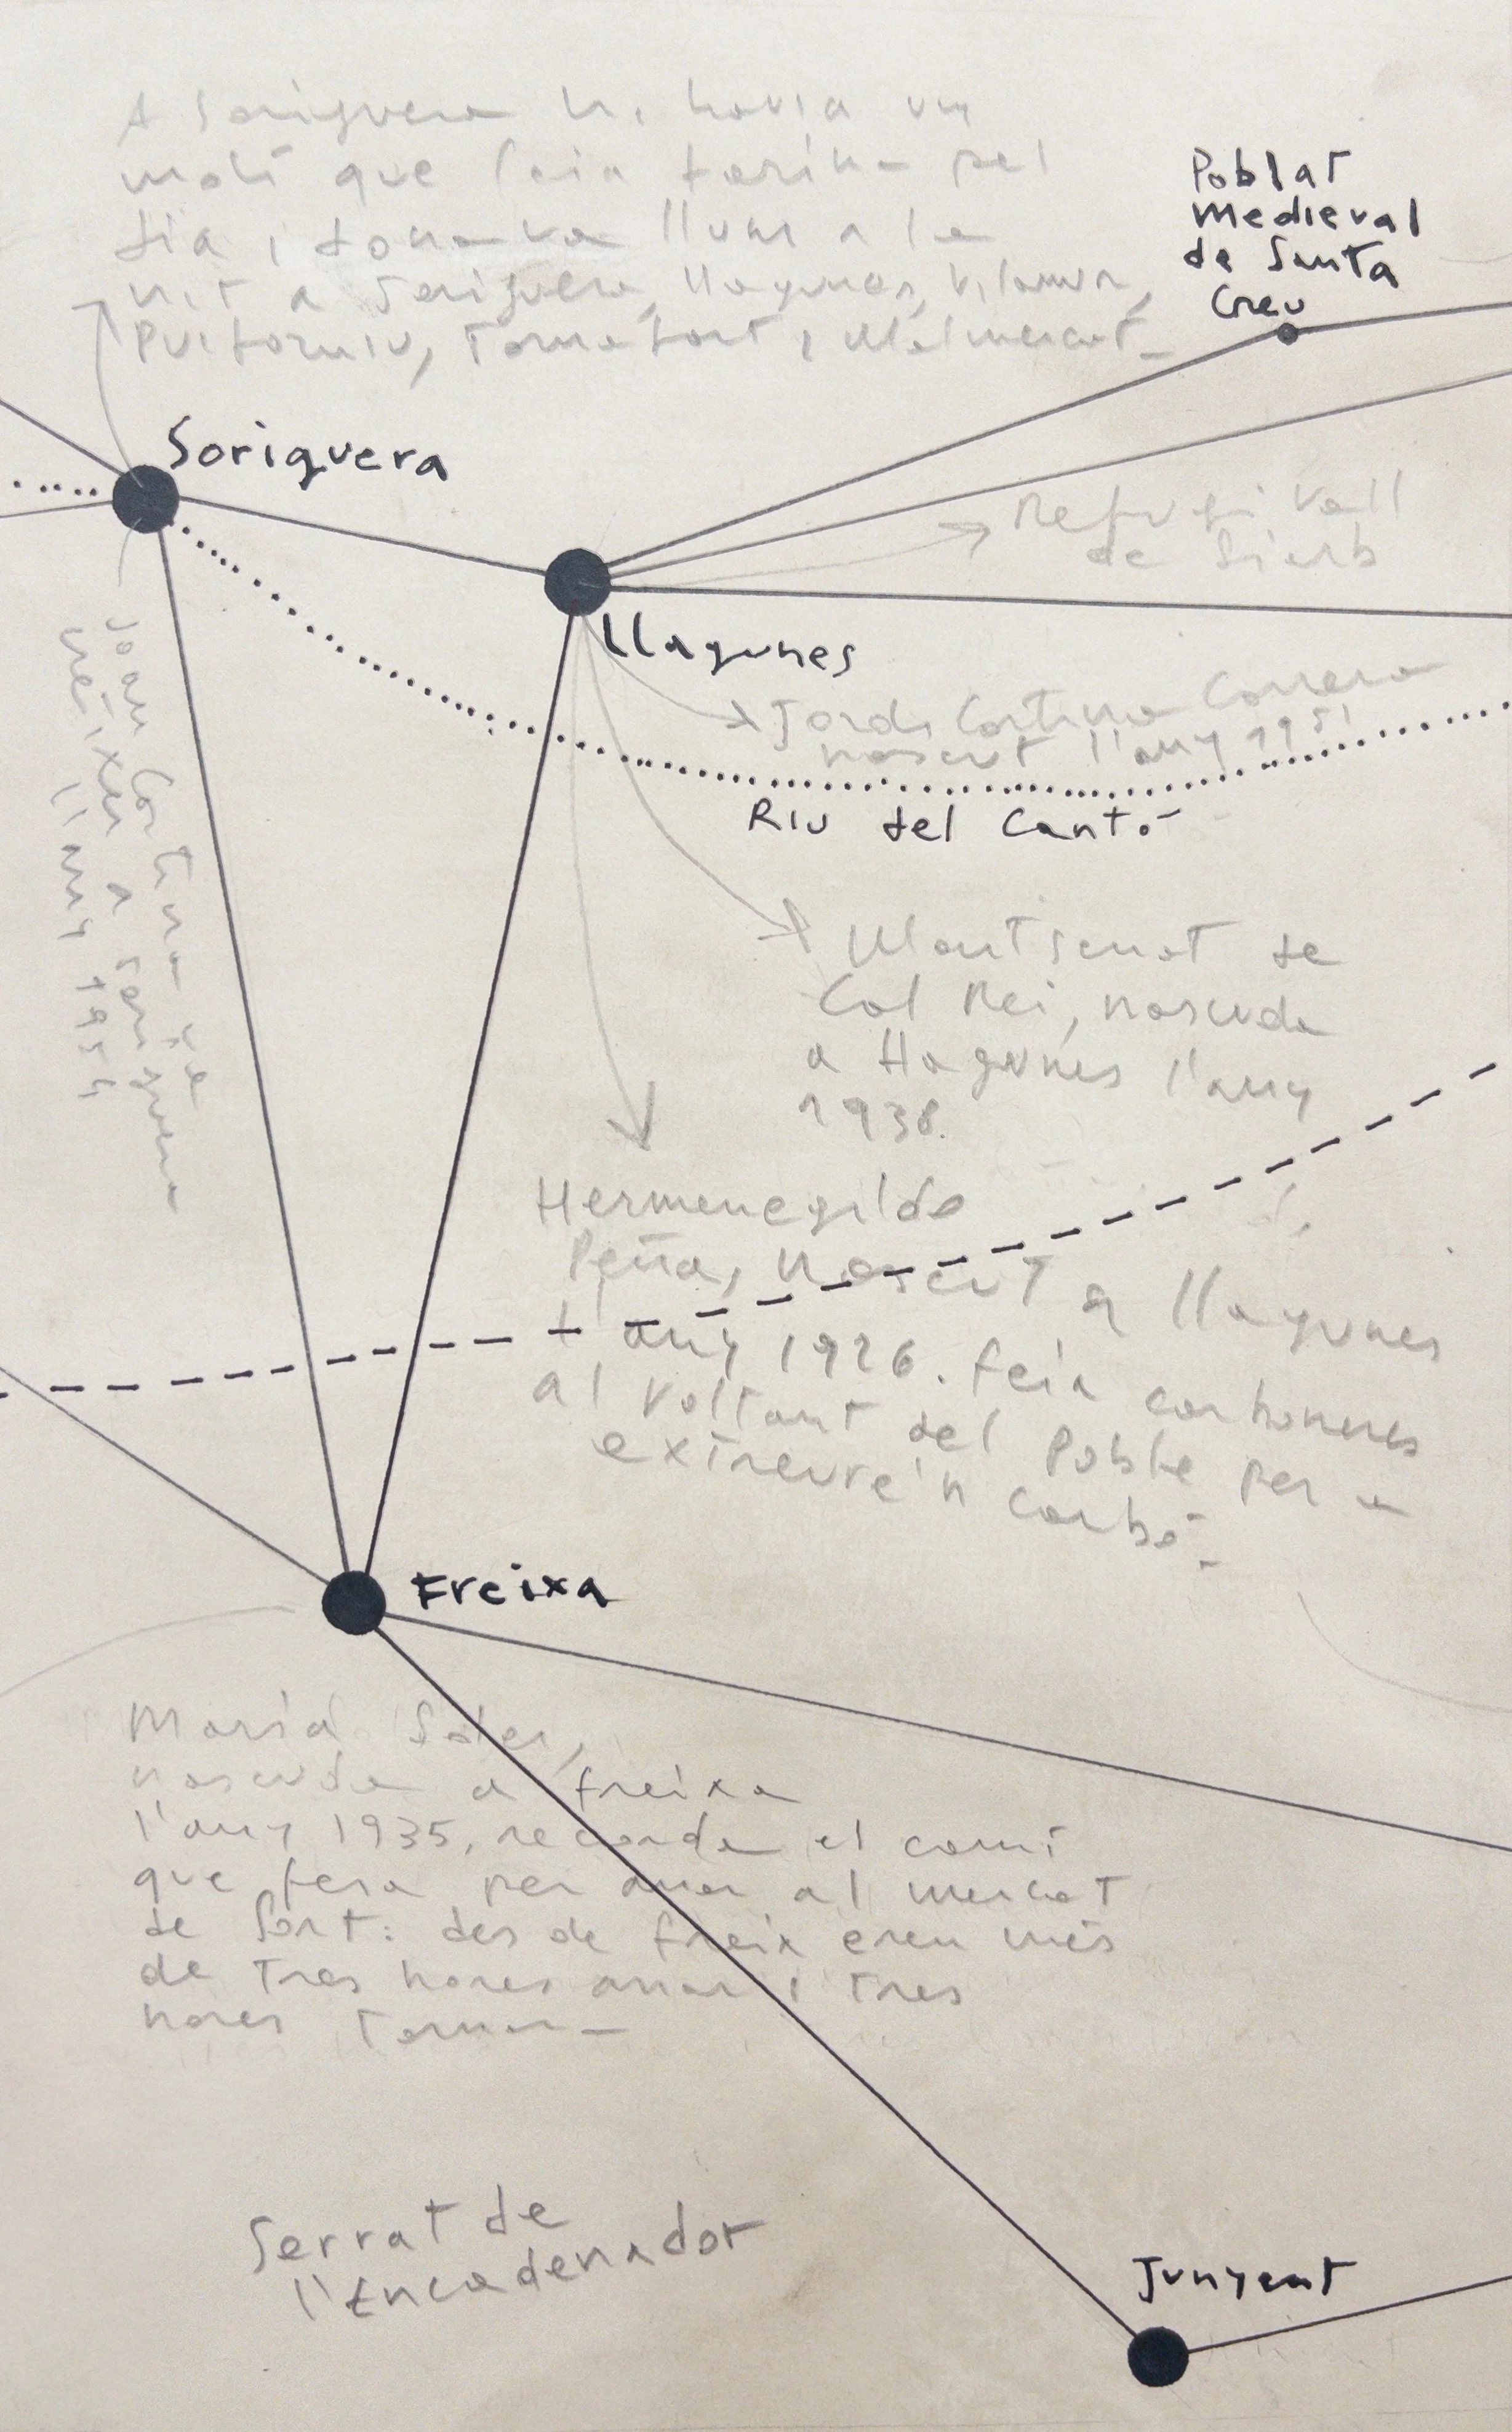 A Soriguera hi havia un
molí que feia farina pel
dia i donava llum a la
nit a Soriguera, Llagunes, Vilamur,
Puiforniu, Tornafort i Malmercat.
Poblat
medieval
de Santa
Creu
Soriguera
Refugi Vall
de Siarb
Llagunes
Jordi Cortina Correra
nascut l'any 1951
Riu del Cantó
Joan Cortina va
néixer a Soriguera
l'any 1954
Montserrat de
Cal Rei, nascuda
a Llagunes l'any
1938.
Hermenegildo
Peña, nascut a Llagunes
l'any 1926. feia carboneres
al voltant del poble per a
extreure'n carbó.
Freixa
Maria Soler,
nascuda a freixa
l'any 1935, recorda el camí
que feia per anar al mercat
de Sort: des de freix eren més
de tres hores anar i tres
hores tornar.
Serrat de
l'Encadenador
Junyent